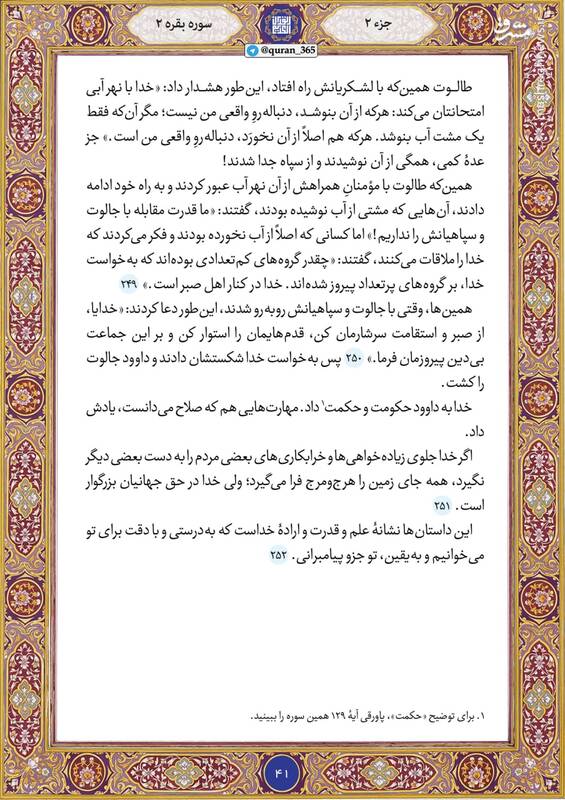 سوره بقره ۲
جزء ۲
@quran_365
مشرق
طالوت همین‌که با لشکریانش راه افتاد، این‌طور هشدار داد: «خدا با نهر آبی
امتحانتان می‌کند: هرکه از آن بنوشد، دنباله‌روِ واقعی من نیست؛ مگر آن‌که فقط
یک مشت آب بنوشد. هرکه هم اصلاً از آن نخورَد، دنباله‌رو واقعی من است.» جز
عدهٔ کمی، همگی از آن نوشیدند و از سپاه جدا شدند!
همین‌که طالوت با مؤمنانِ همراهش از آن نهر آب عبور کردند و به راه خود ادامه
دادند، آن‌هایی که مشتی از آب نوشیده بودند، گفتند: «ما قدرت مقابله با جالوت
و سپاهیانش را نداریم!» اما کسانی که اصلاً از آب نخورده بودند و فکر می‌کردند که
خدا را ملاقات می‌کنند، گفتند: «چقدر گروه‌های کم‌تعدادی بوده‌اند که به‌خواست
خدا، بر گروه‌های پرتعداد پیروز شده‌اند. خدا در کنار اهل صبر است.» ۲۴۹
همین‌ها، وقتی با جالوت و سپاهیانش روبه‌رو شدند، این‌طور دعا کردند: «خدایا،
از صبر و استقامت سرشارمان کن، قدم‌هایمان را استوار کن و بر این جماعت
بی‌دین پیروزمان فرما.» ۲۵۰ پس به‌خواست خدا شکستشان دادند و داوود جالوت
را کشت.
خدا به داوود حکومت و حکمت۱ داد. مهارت‌هایی هم که صلاح می‌دانست، یادش
داد.
اگر خدا جلوی زیاده‌خواهی‌ها و خرابکاری‌های بعضی مردم را به دست بعضی دیگر
نگیرد، همه جای زمین را هرج‌ومرج فرا می‌گیرد؛ ولی خدا در حق جهانیان بزرگوار
است. ۲۵۱
این داستان‌ها نشانهٔ علم و قدرت و ارادهٔ خداست که به‌درستی و با دقت برای تو
می‌خوانیم و به‌یقین، تو جزو پیامبرانی. ۲۵۲
۱. برای توضیح «حکمت»، پاورقی آیهٔ ۱۲۹ همین سوره را ببینید.
۴۱